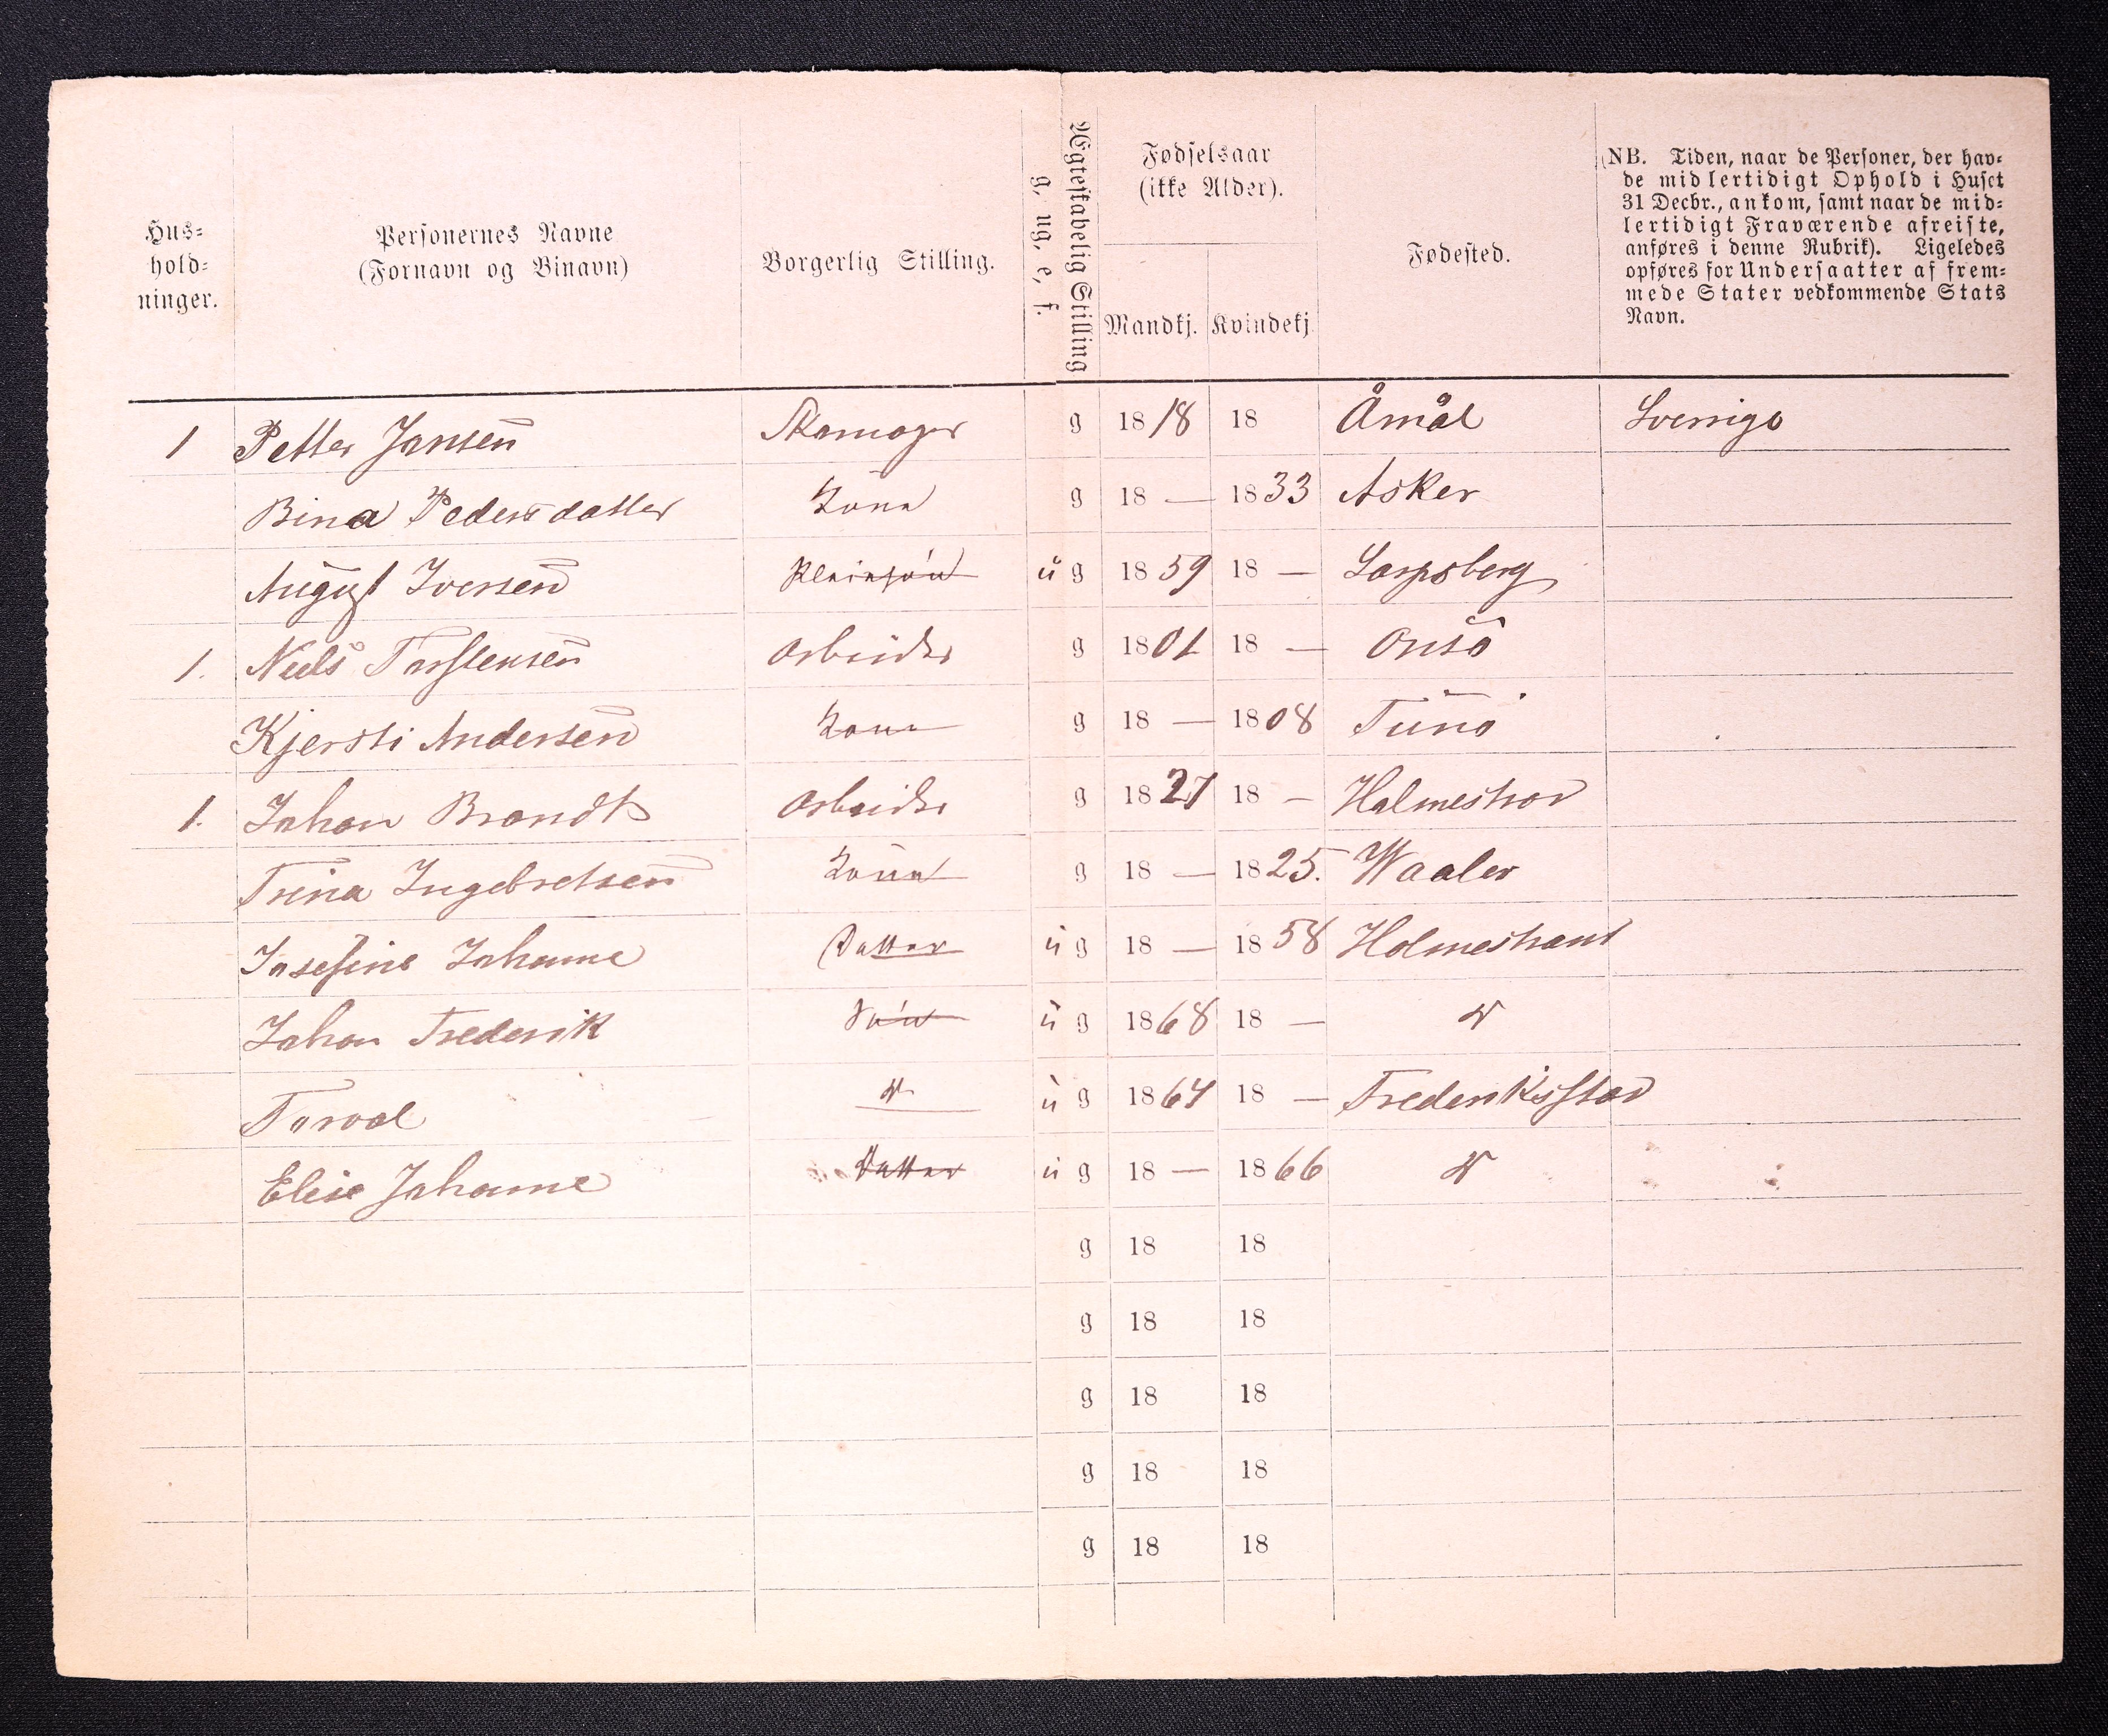 Hus-
hold-
ninger.
Personernes Navne
(Fornavn og Binavn)
Borgerlig Stilling.
Ægteskabelig Stilling
g, ug, e, f.
Fødselsaar
(ikke Alder).
Mandkj. Kvindekj
Fødested.
(NB. Tiden, naar de Personer, der hav-
de midlertidigt Ophold i Huset
31 Decbr., ankom, samt naar de mid-
lertidigt Fraværende afreiste,
anføres i denne Rubrik). Ligeledes
opføres for Undersaatter af frem-
mede Stater vedkommende Stats
Navn.
1 Petter Jansen Skomager g 1818 18 Åmål Sverrige
Bina Pedersdatter Kone g 18 — 1833 Asker
August Iversen Pleiesøn ug 1859 18 — Sarpsborg
1. Niels Torstensen Arbeider g 1801 18 — Onsø
Kjersti Andersen Kone g 18 — 1808 Tunø
1. Johan Brandt Arbeider g 1827 18 — Holmestrod
Trina Ingebretsen Kone g 18 — 1825. Waaler
Josefine Johanne Datter ug 18 — 1858 Holmestrand
Johan Frederik Søn ug 1868 18 — d
Torval d ug 1864 18 — Frederiksstad
Elise Johanne Datter ug 18 — 1866 d
g 18 18
g 18 18
g 18 18
g 18 18
g 18 18